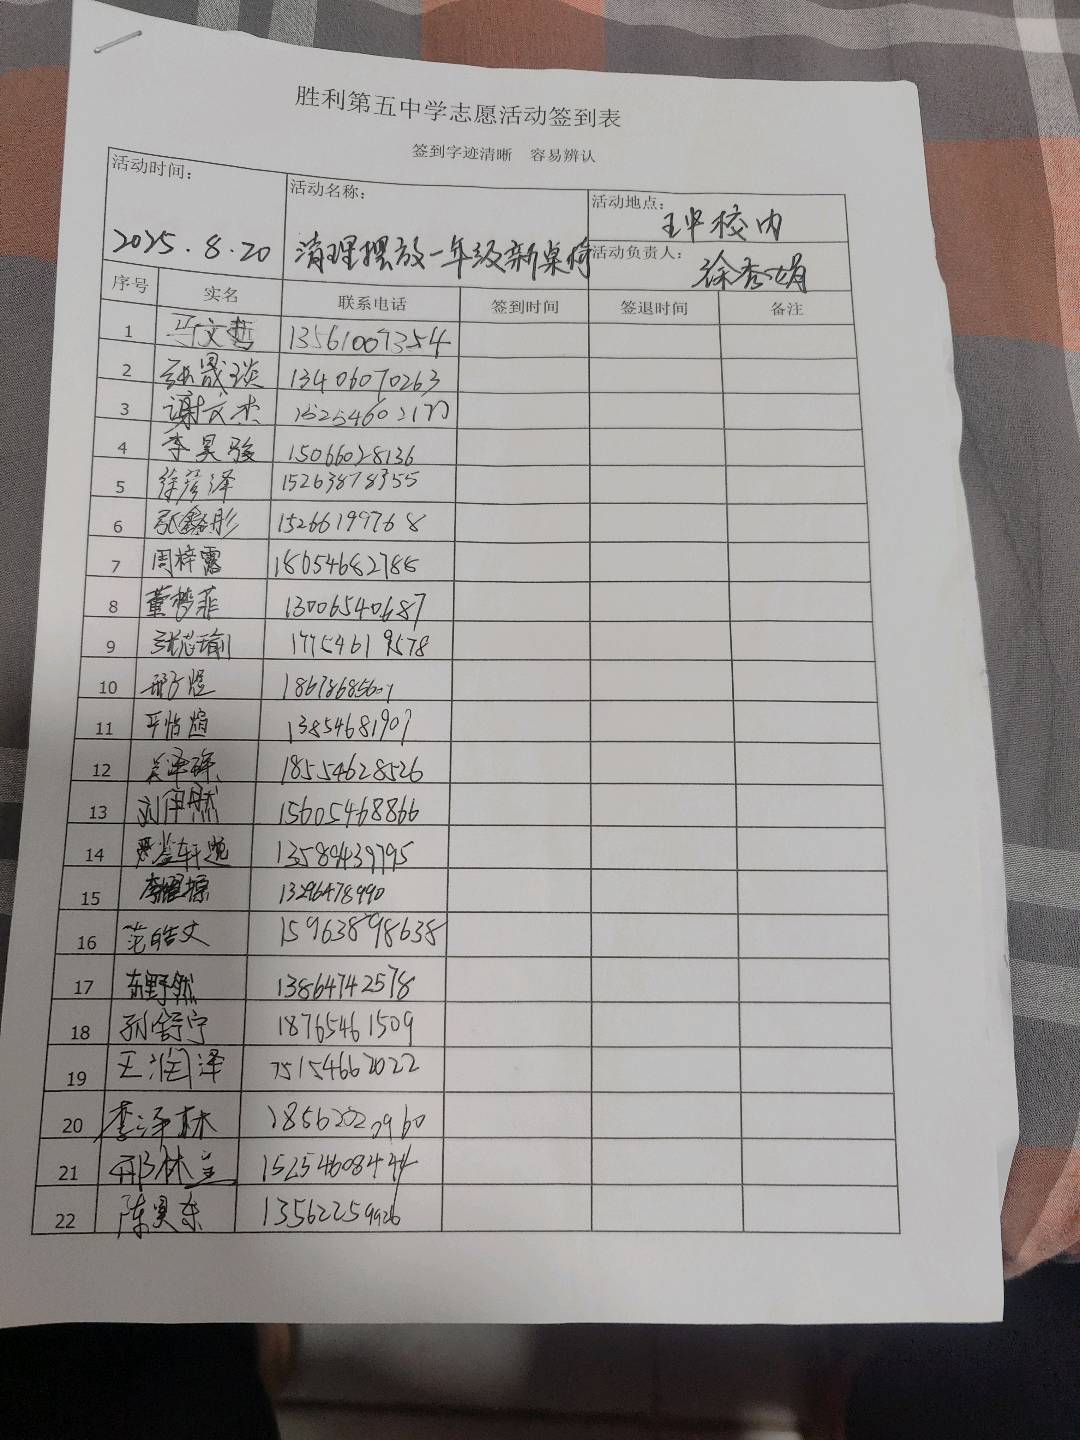 胜利第五中学志愿活动签到表
签到字迹清晰 容易辨认
活动时间: 2025.8.20
活动名称: 清理摆放一年级新桌椅
活动地点: 校内
活动负责人: 徐秀娟
序号 实名 联系电话 签到时间 签退时间 备注
1 马文哲 13561007354
2 张晟琰 13406070263
3 谢文杰
4 李昊骏 15066028136
5 徐彦泽 15263878355
6 张鑫彤 15266199768
7 周梓露 18654682788
8 董梦菲 13006540687
9 张芯瑜 17754619578
10 邢子煜
11 平怡煊 13854681907
12 18554628526
13 15605468866
14 13589439795
15 李耀 13296478990
16 范皓文 15963898638
17 东野然 13864742578
18 孙舒宁 18765461509
19 王润泽 15154662022
20 李泽林 18562022960
21 邢林 15254608444
22 陈昊东 13562259926